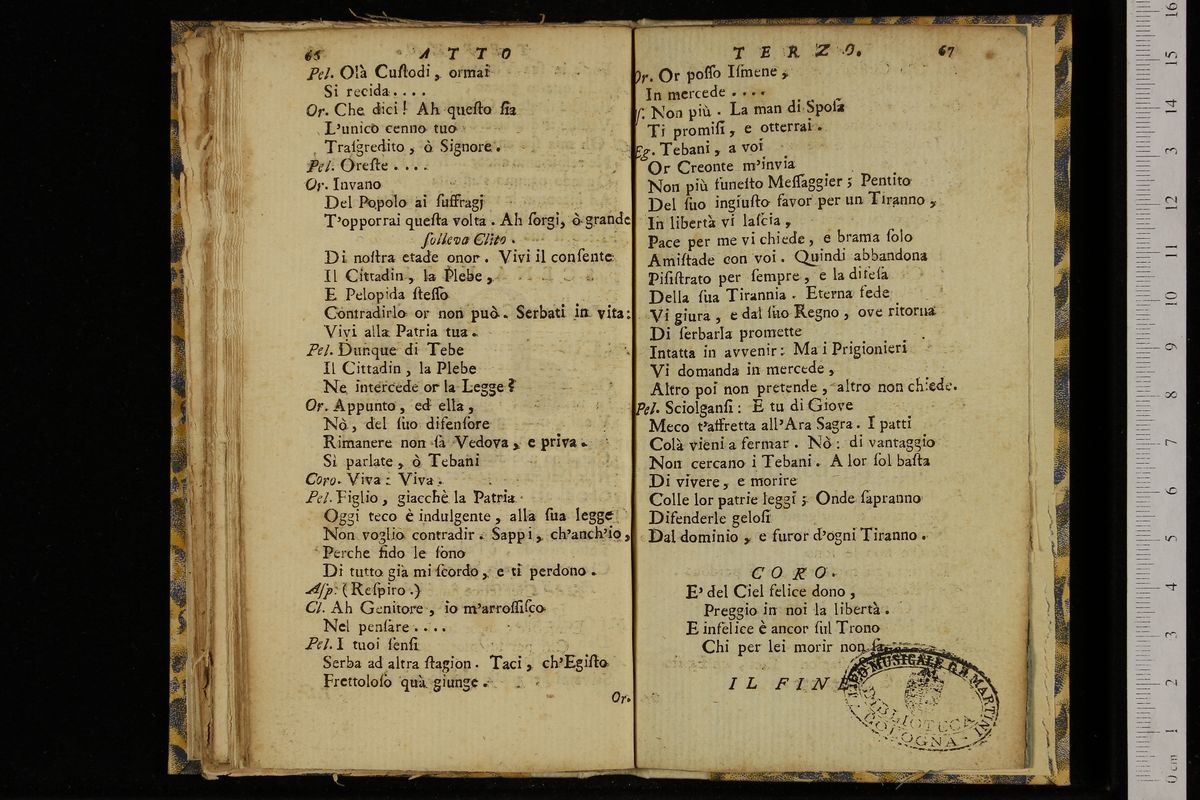 66 ATTO
Pel. Olà Cuſtodi, ormai
Si recida....
Or. Che dici! Ah queſto ſia
L'unico cenno tuo
Traſgredito, ò Signore.
Pel. Oreſte....
Or. Invano
Del Popolo ai ſuffragj
T'opporrai queſta volta. Ah ſorgi, ò grande
ſolleva Clito.
Di noſtra etade onor. Vivi il conſente
Il Cittadin, la Plebe,
E Pelopida ſteſſo
Contradirlo or non può. Serbati in vita:
Vivi alla Patria tua.
Pel. Dunque di Tebe
Il Cittadin, la Plebe
Ne intercede or la Legge?
Or. Appunto, ed ella,
Nò, del ſuo difenſore
Rimanere non ſà Vedova, e priva.
Si parlate, ò Tebani
Coro. Viva: Viva.
Pel. Figlio, giacchè la Patria
Oggi teco è indulgente, alla ſua legge
Non voglio contradir. Sappi, ch'anch'io,
Perche fido le ſono
Di tutto già mi ſcordo, e ti perdono.
Aſp. (Reſpiro.)
Cl. Ah Genitore, io m'arroſſiſco
Nel penſare....
Pel. I tuoi ſenſi
Serba ad altra ſtagion. Taci, ch'Egiſto
Frettoloſo quà giunge.
Or.
TERZO. 67
Or. Or poſſo Iſmene,
In mercede....
ſ. Non più. La man di Spoſa
Ti promiſi, e otterrai.
Eg. Tebani, a voi
Or Creonte m'invia
Non più funeſto Meſſaggier; Pentito
Del ſuo ingiuſto favor per un Tiranno,
In libertà vi laſcia,
Pace per me vi chiede, e brama ſolo
Amiſtade con voi. Quindi abbandona
Piſiſtrato per ſempre, e la difeſa
Della ſua Tirannia. Eterna fede
Vi giura, e dal ſuo Regno, ove ritorna
Di ſerbarla promette
Intatta in avvenir: Ma i Prigionieri
Vi domanda in mercede,
Altro poi non pretende, altro non chiede.
Pel. Sciolganſi: E tu di Giove
Meco t'affretta all'Ara Sagra. I patti
Colà vieni a fermar. Nò: di vantaggio
Non cercano i Tebani. A lor ſol baſta
Di vivere, e morire
Colle lor patrie leggi; Onde ſapranno
Difenderle geloſi
Dal dominio, e furor d'ogni Tiranno.
CORO.
E' del Ciel felice dono,
Preggio in noi la libertà.
E infelice è ancor ſul Trono
Chi per lei morir non ſa.
IL FINE
LICEO MUSICALE G.B. MARTINI
BIBLIOTECA
BOLOGNA
0 cm 1 2 3 4 5 6 7 8 9 10 11 12 13 14 15 16